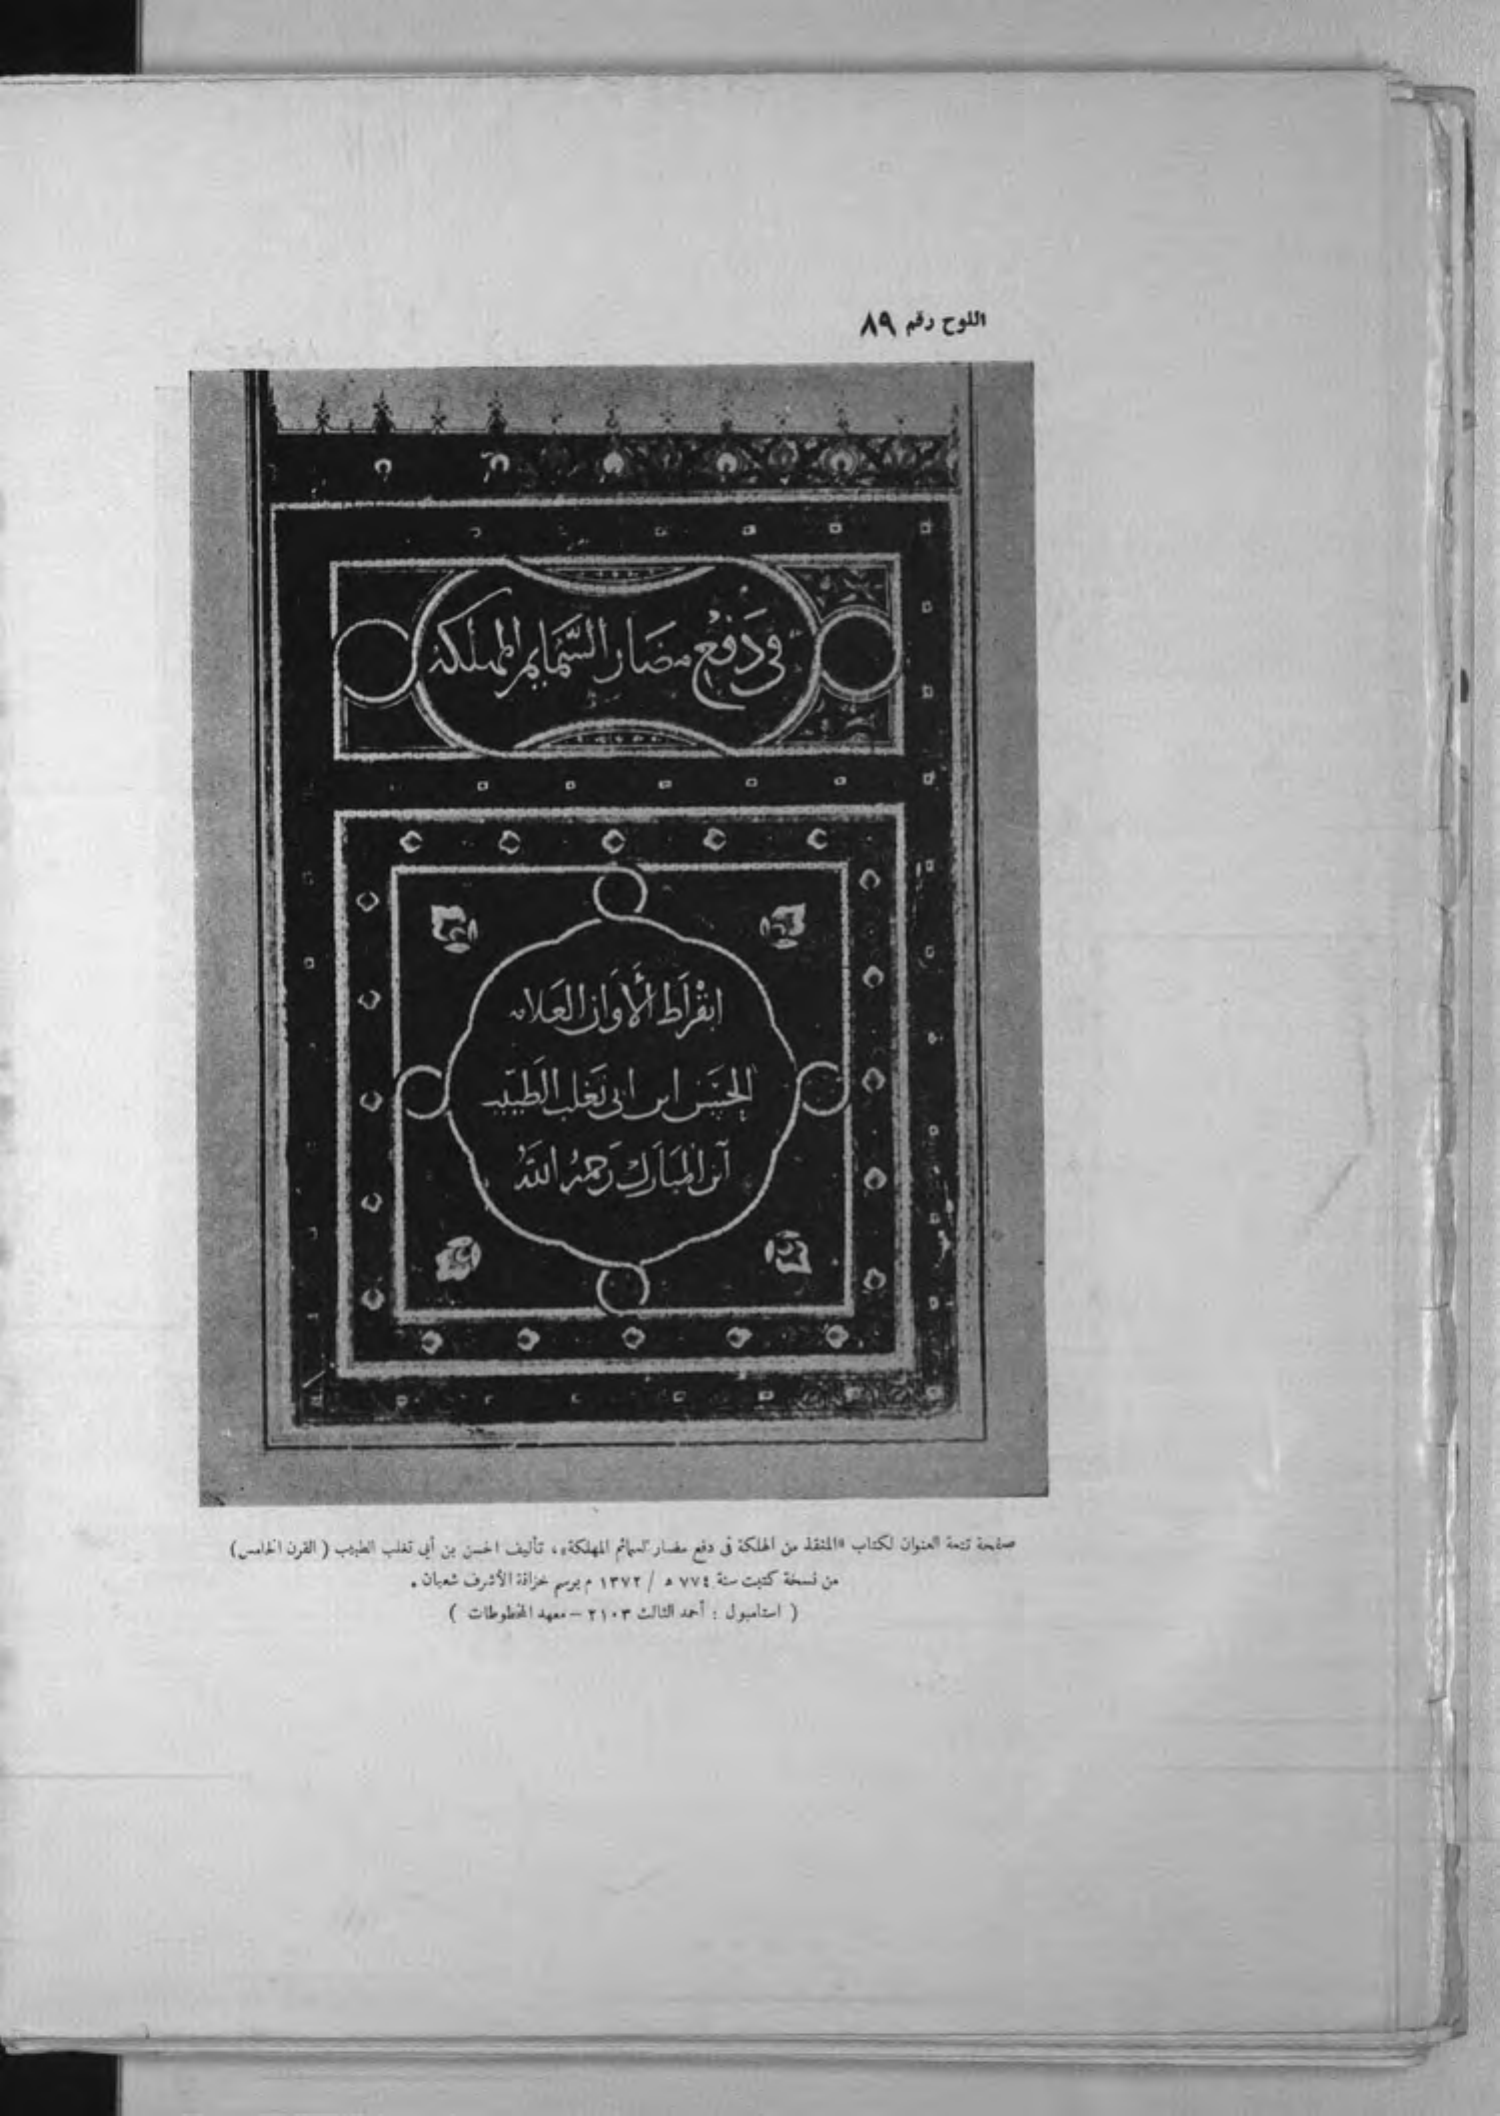 اللوح رقم ٨٩
فى دفع مضار السمايم المهلكة
ابقراط الأوان العلامه
الحسن ابن ابى تغلب الطبيب
ابن المبارك رحمه الله
صفحة تتمة العنوان لكتاب «المنقذ من الهلكة فى دفع مضار السمائم المهلكة»، تأليف الحسن بن أبى تغلب الطبيب ( القرن الخامس)
من نسخة كتبت سنة ٧٧٤ ه / ١٣٧٢ م برسم خزانة الأشرف شعبان .
( استامبول : أحمد الثالث ٢١٠٣ – معهد المخطوطات )